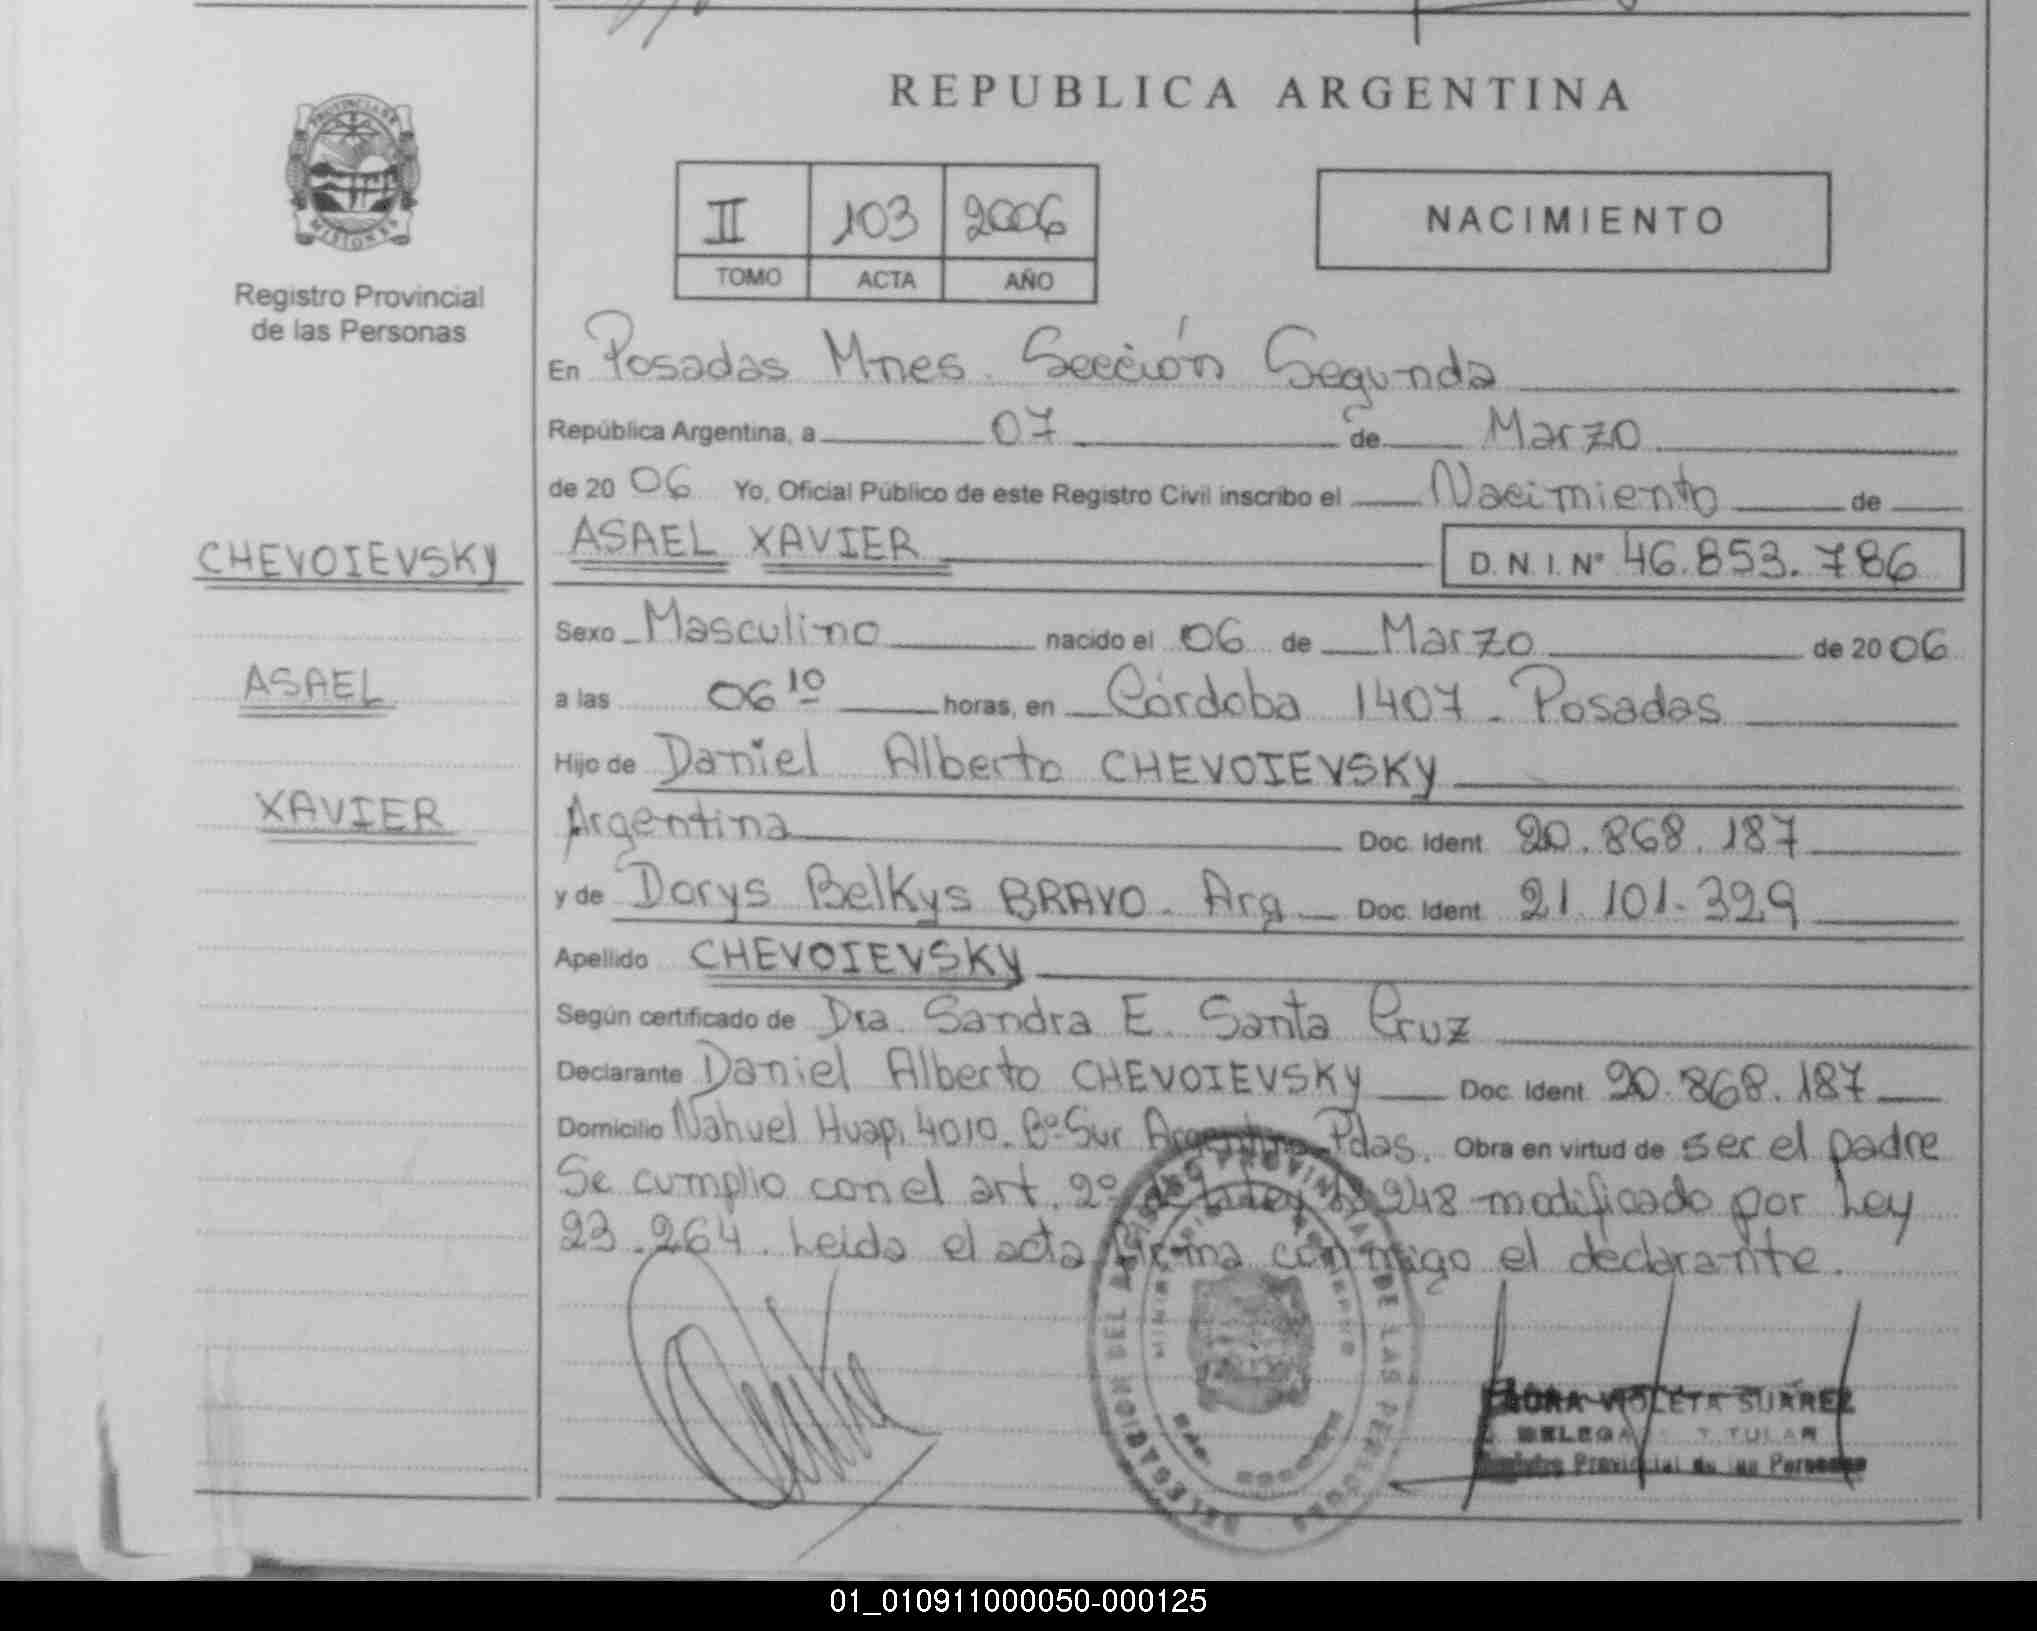 REPUBLICA ARGENTINA
PROVINCIA DE
MISIONES
Registro Provincial
de las Personas
II 103 2006
TOMO ACTA AÑO
NACIMIENTO
En Posadas Mnes. Sección Segunda
República Argentina, a 07 de Marzo
de 2006 Yo, Oficial Público de este Registro Civil inscribo el Nacimiento de
CHEVOIEVSKY
ASAEL
XAVIER
ASAEL XAVIER D.N.I. Nº 46.853.786
Sexo Masculino nacido el 06 de Marzo de 2006
a las 06 10 horas, en Córdoba 1407 - Posadas
Hijo de Daniel Alberto CHEVOIEVSKY
Argentina Doc. Ident. 20.868.187
y de Dorys Belkys BRAVO - Arg Doc. Ident. 21.101.329
Apellido CHEVOIEVSKY
Según certificado de Dra. Sandra E. Santa Cruz
Declarante Daniel Alberto CHEVOIEVSKY Doc. Ident. 20.868.187
Domicilio Nahuel Huapi 4010. Bº Sur Argentino Pdas. Obra en virtud de ser el padre
Se cumplio con el art. 2º de la Ley 18.248 modificado por Ley
23.264. Leida el acta firma conmigo el declarante.
DELEGACION DEL REGISTRO PROVINCIAL DE LAS PERSONAS
VIOLETA SUAREZ
DELEGADA TITULAR
Registro Provincial de las Personas
01_010911000050-000125